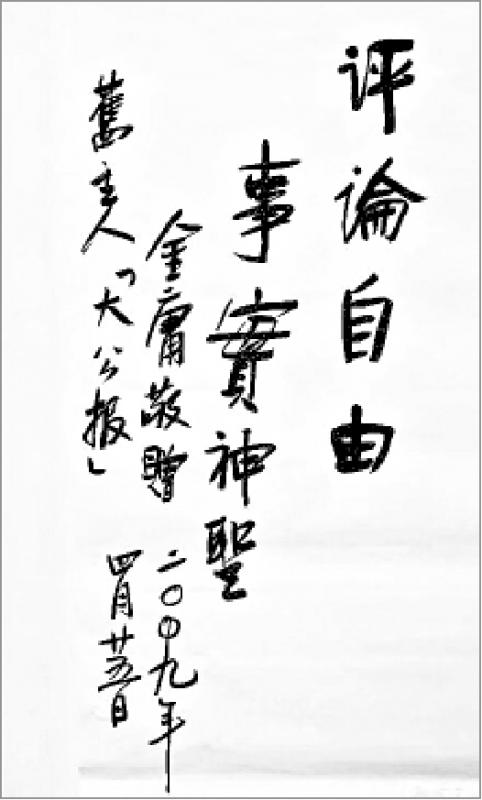 评論自由
事實神聖
舊主人「大公报」
金庸敬贈
二〇〇九年
四月廿五日